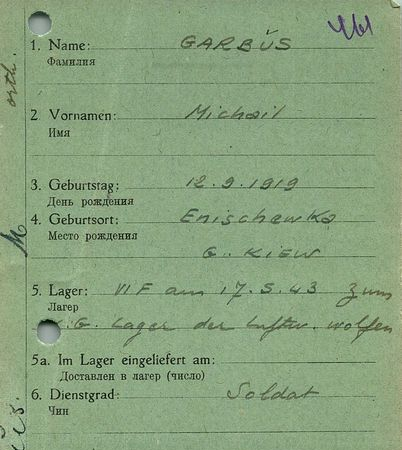 461
1. Name: GARBUS
Фамилия
orth.
2 Vornamen: Michail
Имя
3. Geburtstag: 12.9.1919
День рождения
4. Geburtsort: Emischewka
Место рождения
G. KIEW
M
5. Lager: VI F am 17.5.43 zum
Лагер
K.G. Lager der Luftw. Wolfen
5a. Im Lager eingeliefert am:
Доставлен в лагер (число)
6. Dienstgrad: Soldat
Чин